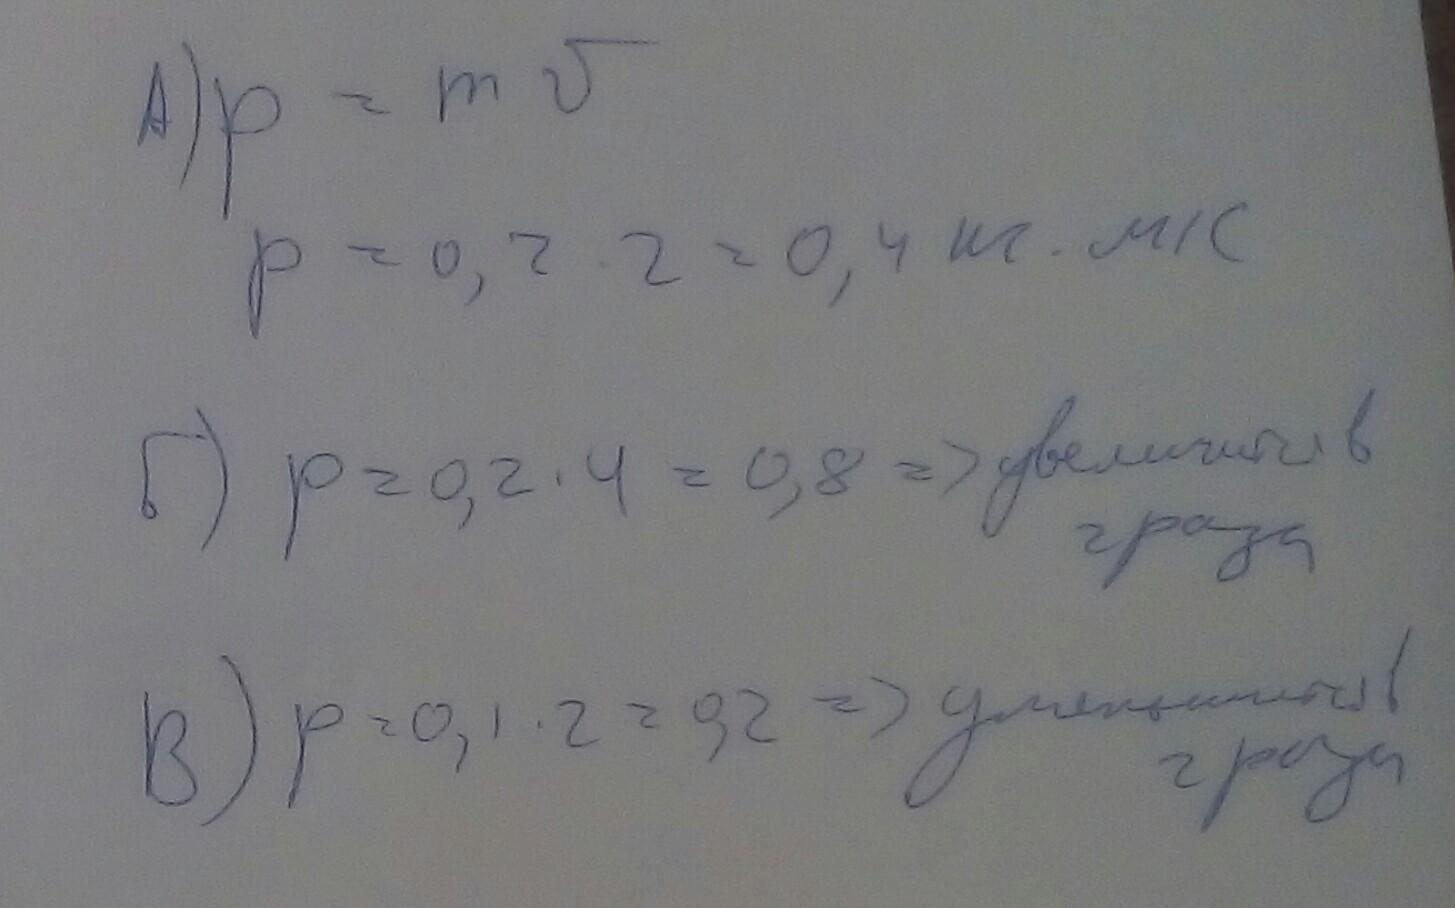 А) p = mv
p = 0,2 · 2 = 0,4 кг · м/с
Б) p = 0,2 · 4 = 0,8 => увеличится в
2 раза
В) p = 0,1 · 2 = 0,2 => уменьшится в
2 раза